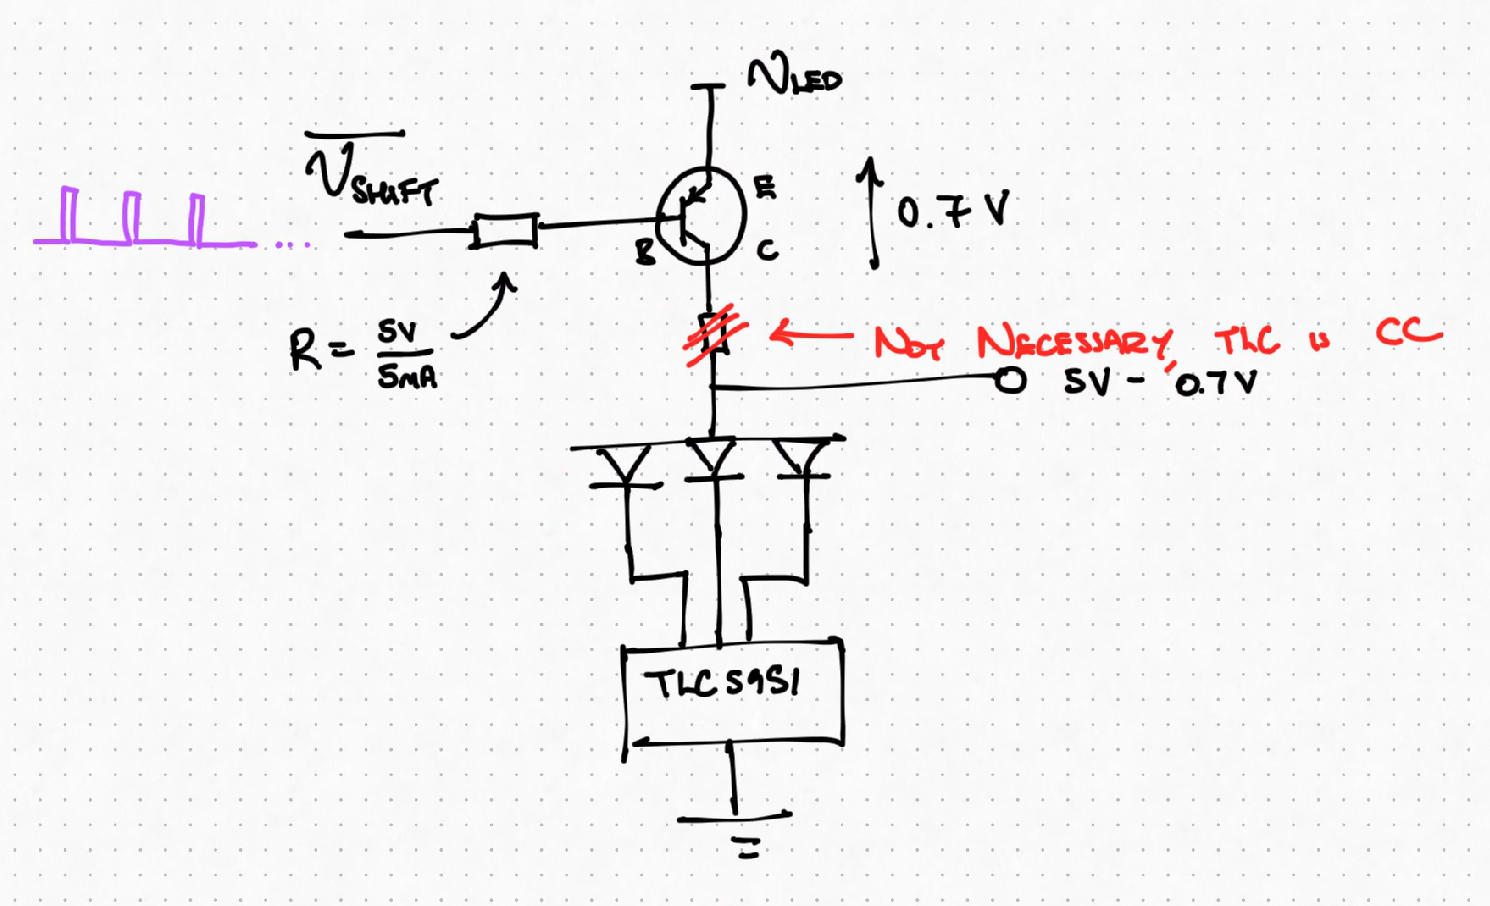 VLED
VSHIFT
E
0.7 V
B
C
R = 5V / 5mA
← NOT NECESSARY, TLC is CC
5V - 0.7V
TLC5951